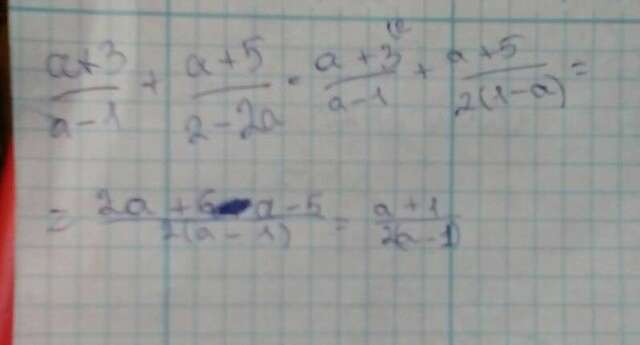 (2
a+3/a-1 + a+5/2-2a = a+3/a-1 + a+5/2(1-a) =
= 2a+6-a-5/2(a-1) = a+1/2(a-1)